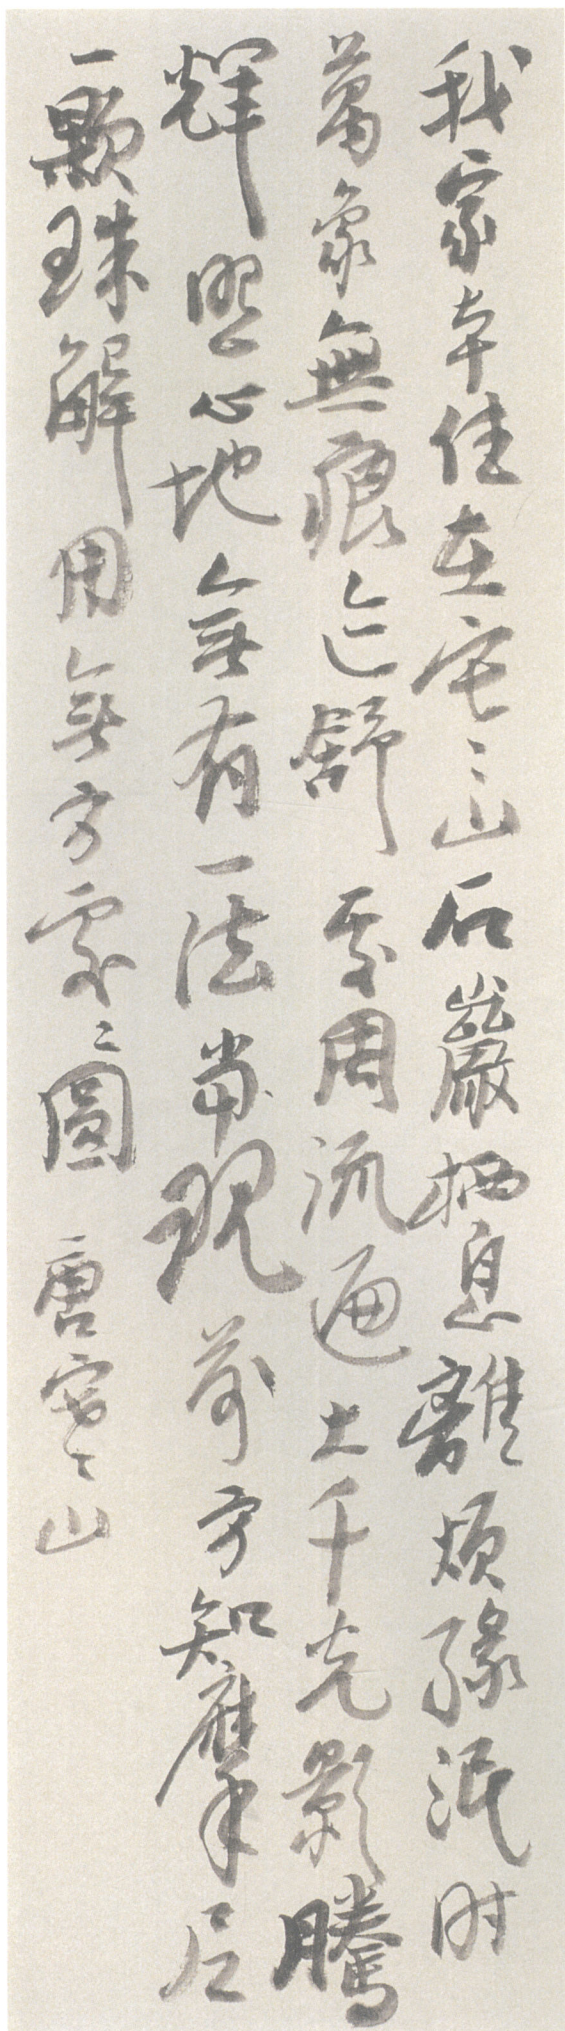 我家本住在寒山石巖栖息離煩緣泯时
萬象無痕迹舒處周流遍大千光影騰
輝照心地無有一法當現前方知摩尼
一顆珠解用無方處々圓 唐寒山